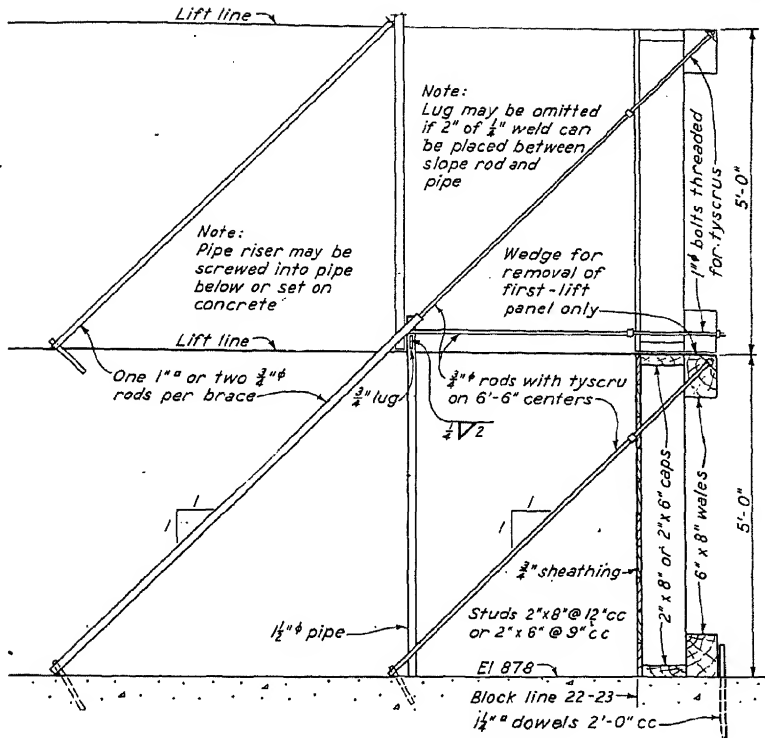 Lift line
Note:
Lug may be omitted
if 2" of 1/4" weld can
be placed between
slope rod and
pipe
5'-0"
1"φ bolts threaded
for tyscrus
Note:
Pipe riser may be
screwed into pipe
below or set on
concrete
Wedge for
removal of
first-lift
panel only
Lift line
One 1"□ or two 3/4"φ
rods per brace
3/4" lug
3/4"φ rods with tyscru
on 6'-6" centers
1/4 2
1
1
1
1
3/4" sheathing
2"x8" or 2"x6" caps
6"x8" wales
5'-0"
1 1/2"φ pipe
Studs 2"x8"@ 12"cc
or 2"x6" @ 9"cc
El 878
Block line 22-23
1 1/4"□ dowels 2'-0" cc